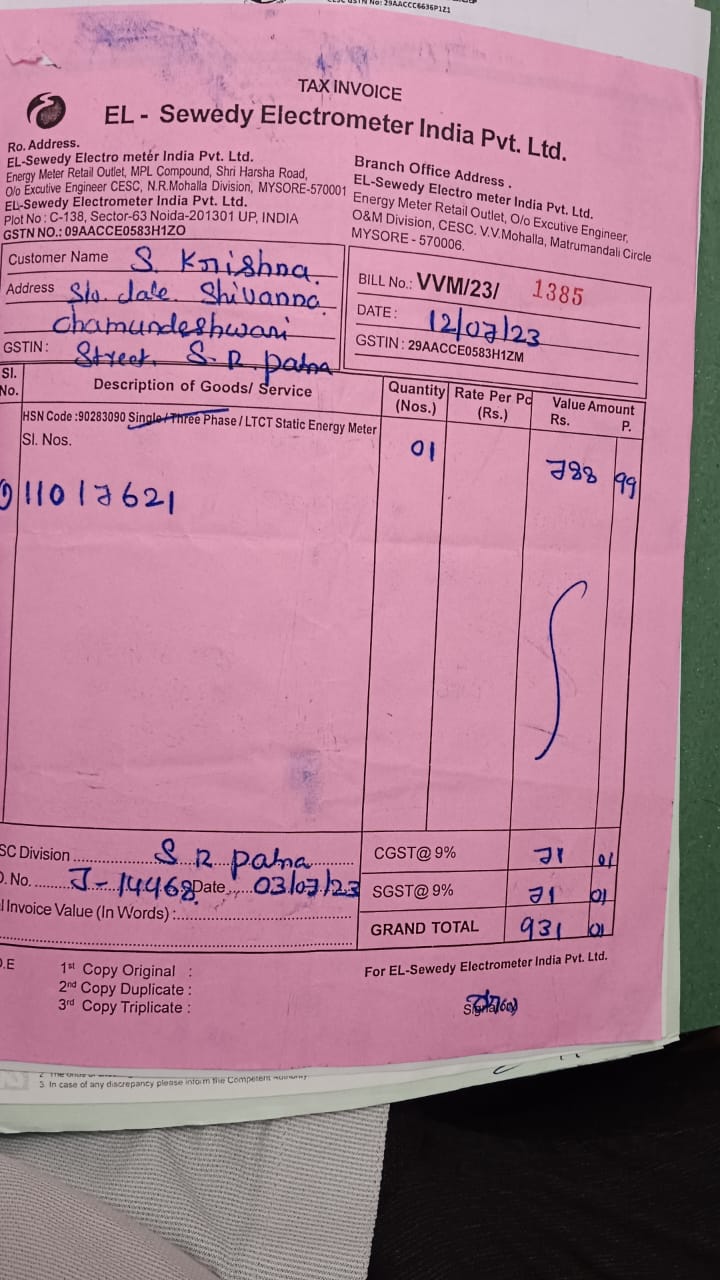 GSTN No: 29AACCC6636P1Z1
TAX INVOICE
EL - Sewedy Electrometer India Pvt. Ltd.
Ro. Address.
EL-Sewedy Electro meter India Pvt. Ltd.
Energy Meter Retail Outlet, MPL Compound, Shri Harsha Road,
O/o Excutive Engineer CESC, N.R.Mohalla Division, MYSORE-570001
EL-Sewedy Electrometer India Pvt. Ltd.
Plot No : C-138, Sector-63 Noida-201301 UP, INDIA
GSTN NO.: 09AACCE0583H1ZO
Branch Office Address .
EL-Sewedy Electro meter India Pvt. Ltd.
Energy Meter Retail Outlet, O/o Excutive Engineer,
O&M Division, CESC. V.V.Mohalla, Matrumandali Circle
MYSORE - 570006.
Customer Name S. Krishna.
Address S/o. late. Shivanna.
Chamundeshwari
GSTIN : Street. S. R. patna
BILL No.: VVM/23/ 1385
DATE : 12/07/23
GSTIN : 29AACCE0583H1ZM
Sl. No. Description of Goods/ Service Quantity (Nos.) Rate Per Pc (Rs.) Value Amount Rs. P.
HSN Code :90283090 Single / Three Phase / LTCT Static Energy Meter
Sl. Nos. 01 788 99
11017621
SC Division S R patna CGST@ 9% 71 01
. No. J-14468 Date 03/07/23 SGST@ 9% 71 01
l Invoice Value (In Words) : GRAND TOTAL 931 01
.E 1st Copy Original :
2nd Copy Duplicate :
3rd Copy Triplicate :
For EL-Sewedy Electrometer India Pvt. Ltd.
3. In case of any discrepancy please inform the Competent Authority